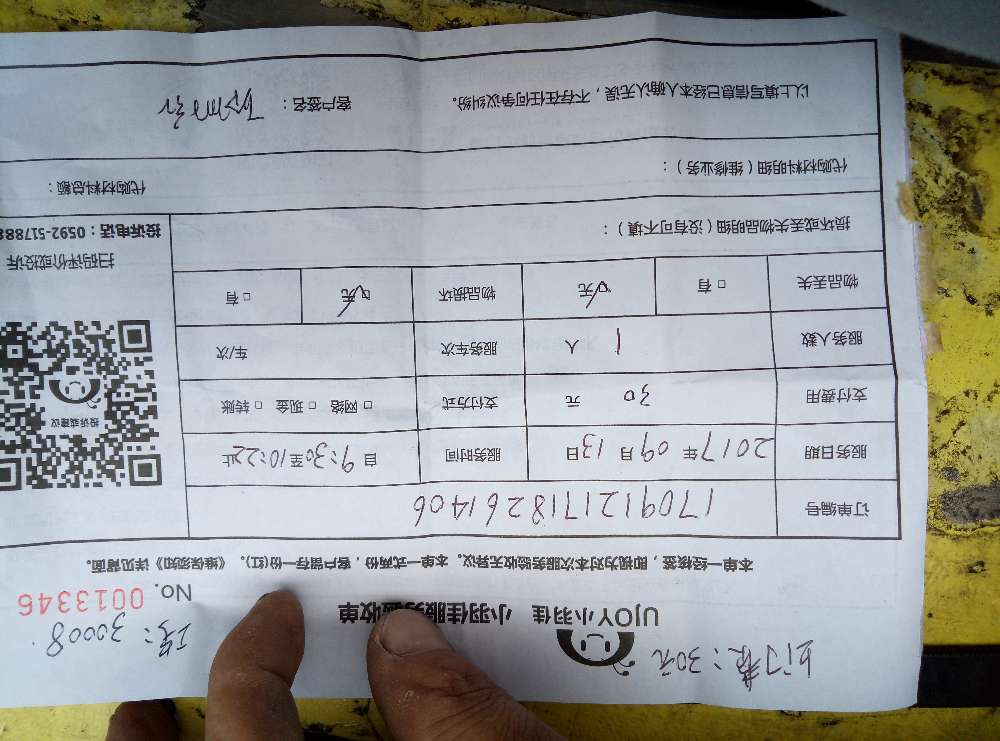 上门费：30元
工号：30008
UJOY小羽佳 小羽佳服务验收单
No. 0013346
本单一经核签，即视为对本次服务验收无异议。本单一式两份，客户留存一份(红)。《维保须知》详见背面。
订单编号 170912171826 1406
服务日期 2017年09月13日 服务时间 自9:30至10:22止
支付费用 30 元 支付方式 □网络 □现金 □转账
服务人数 1 人 服务车次 车/次
物品丢失 □有 □无 物品损坏 □无 □有
投诉或建议
扫码评价或投诉
投诉电话：0592-517888
损坏或丢失物品明细（没有可不填）：
代购材料明细（维修业务）： 代购材料总额：
以上填写信息已经本人确认无误，不存在任何争议纠纷。 客户签名：